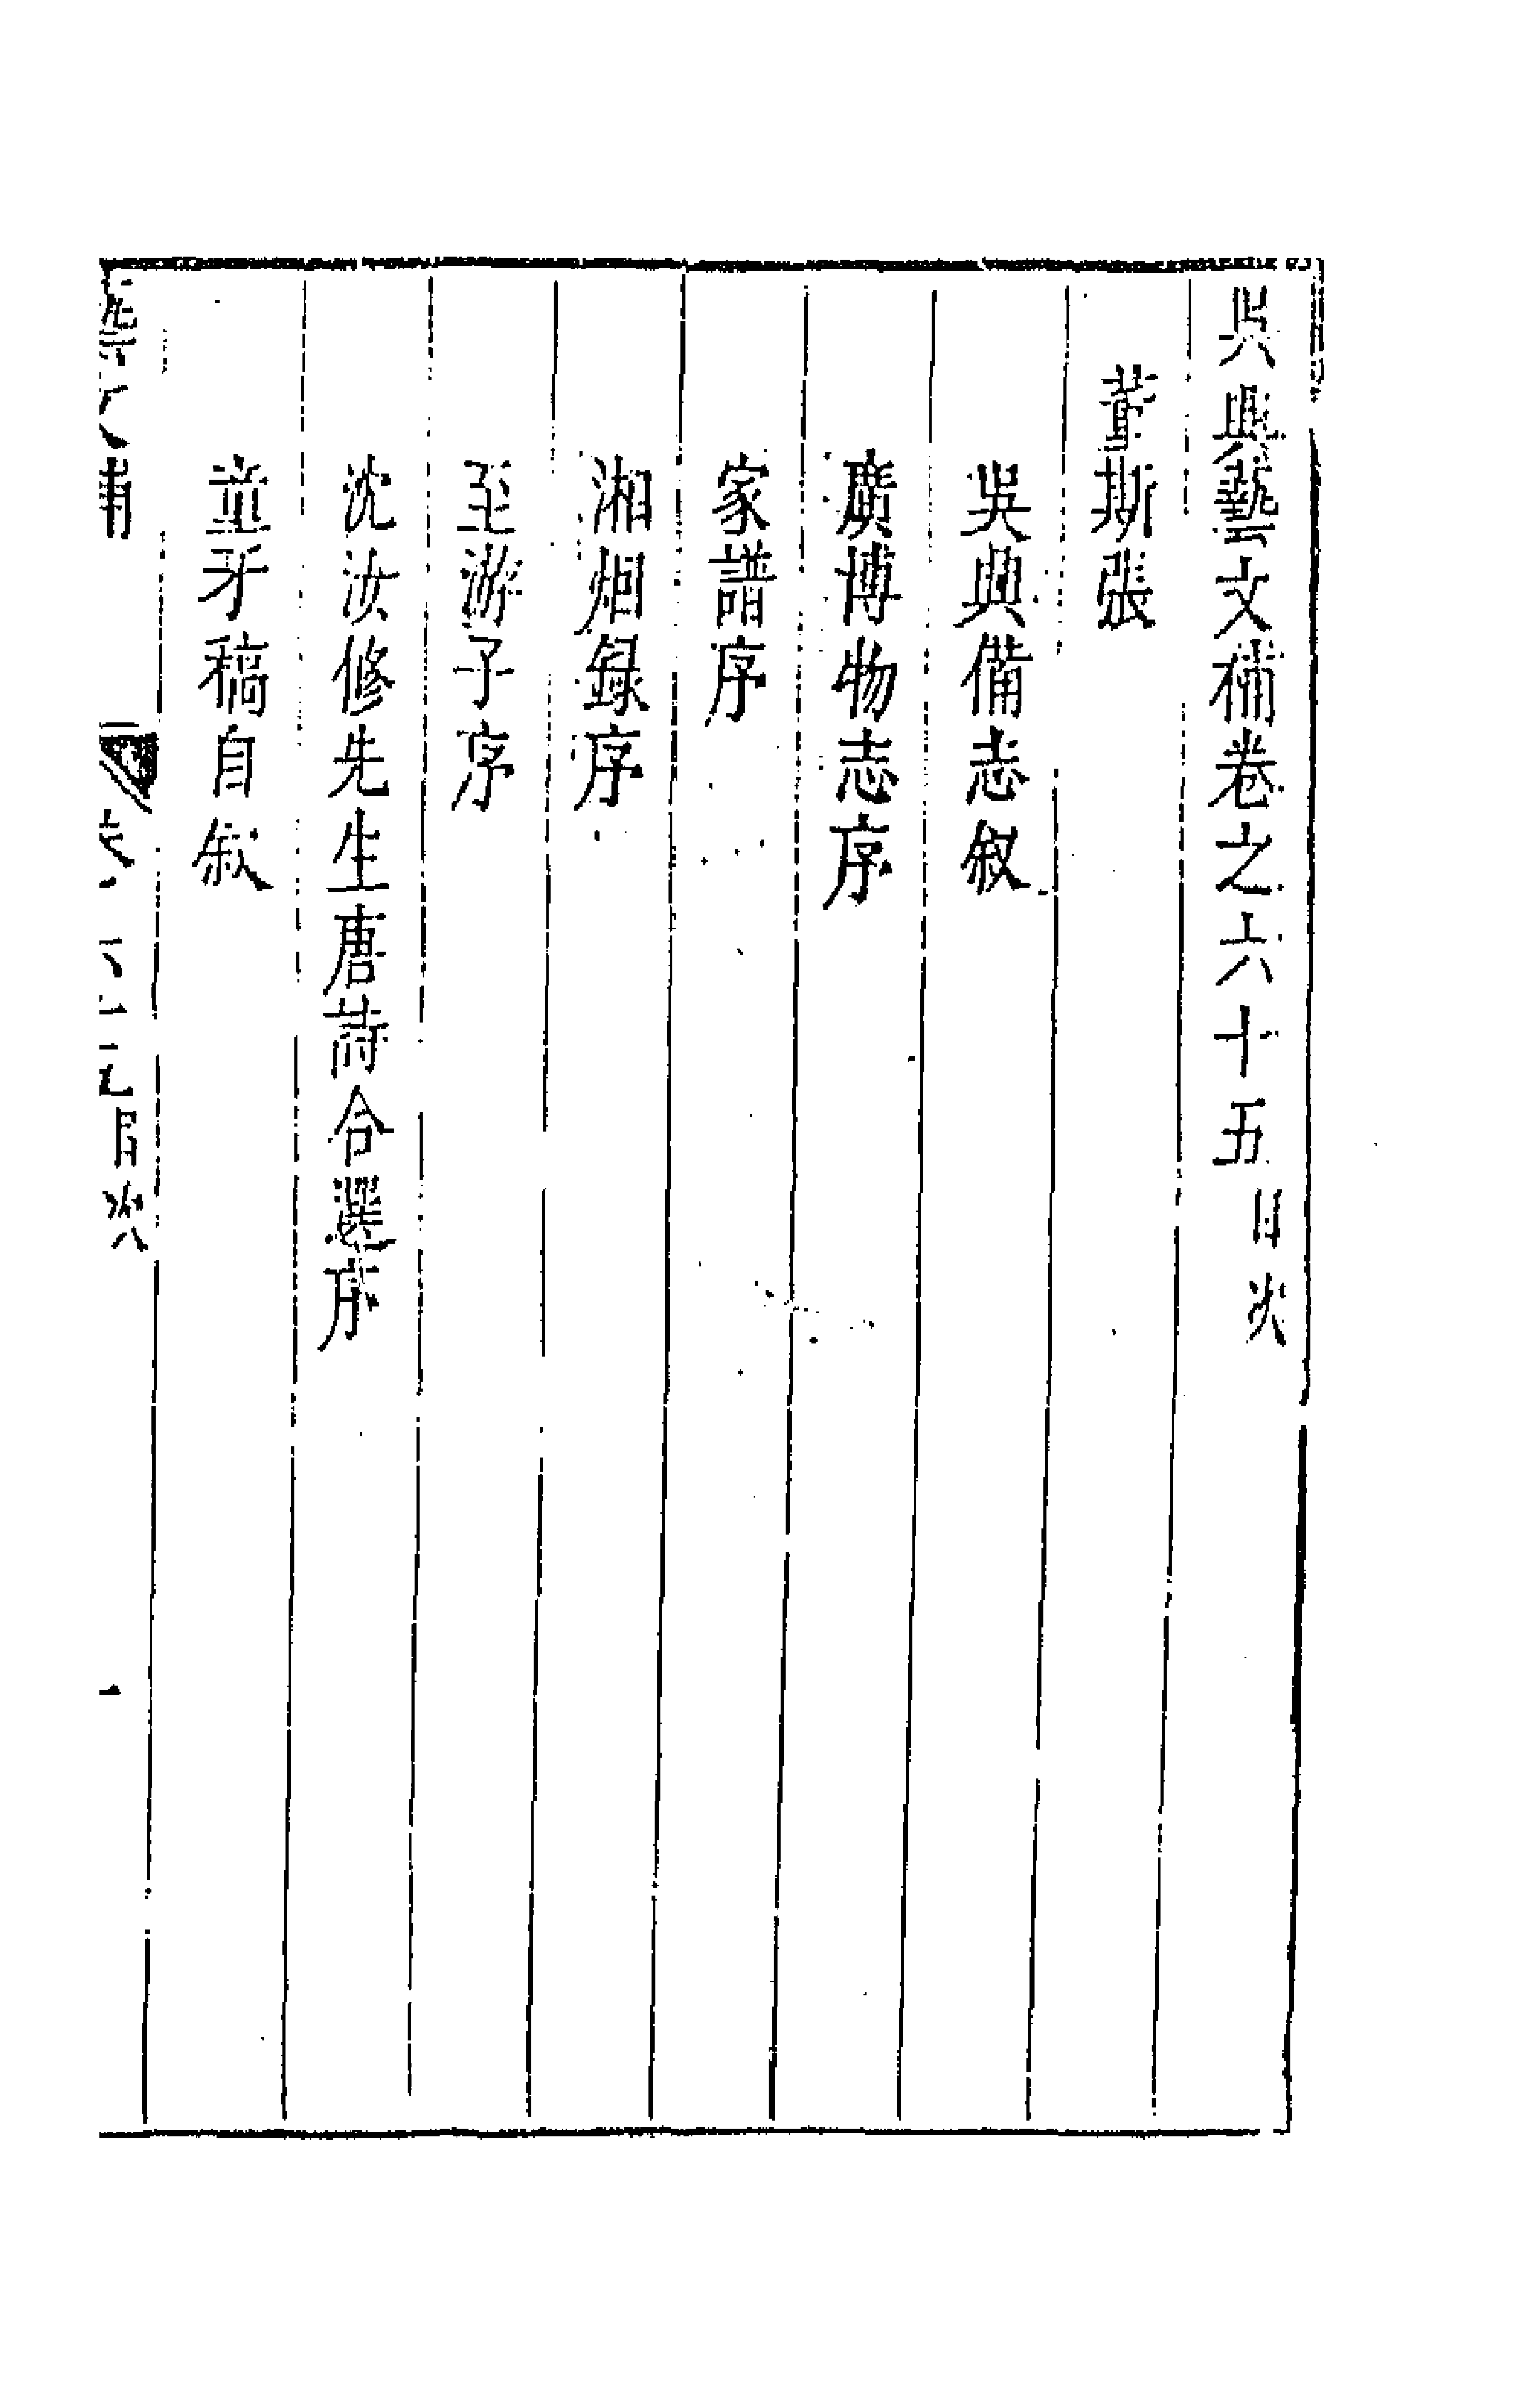 吳興藝文補卷之六十五目次
董斯張
吳興備志叙
廣博物志序
家譜序
湘烟録序
至游子序
沈汝修先生唐詩合選序
童牙稿自叙
目次